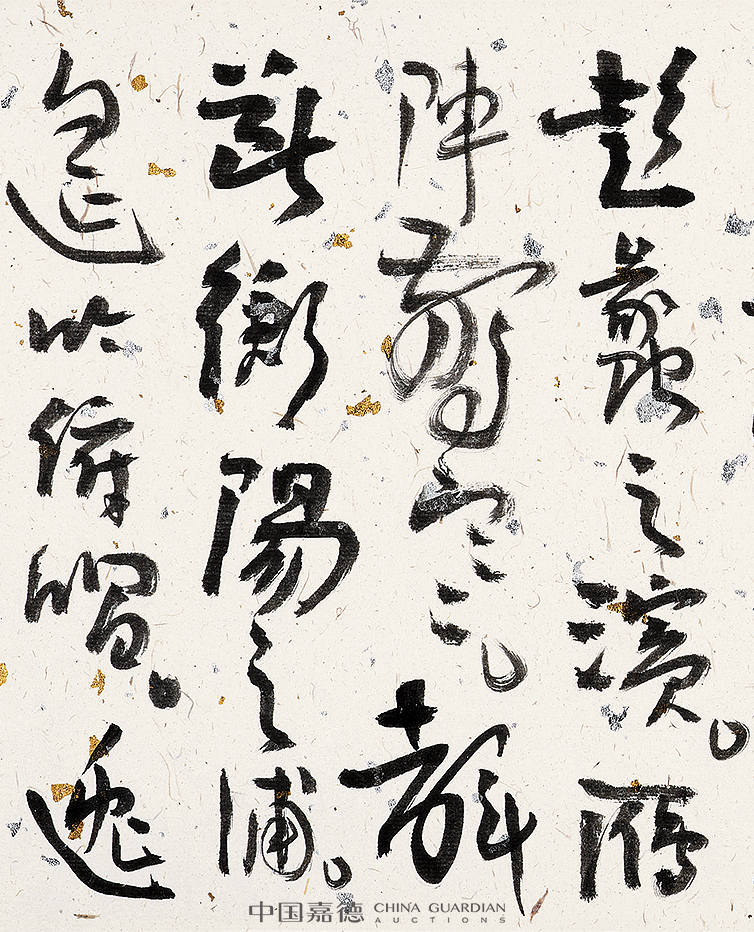 彭蠡之濱。鴈
陣驚寒。聲
斷衡陽之浦。
遙吟俯暢。逸
中国嘉德 CHINA GUARDIAN AUCTIONS